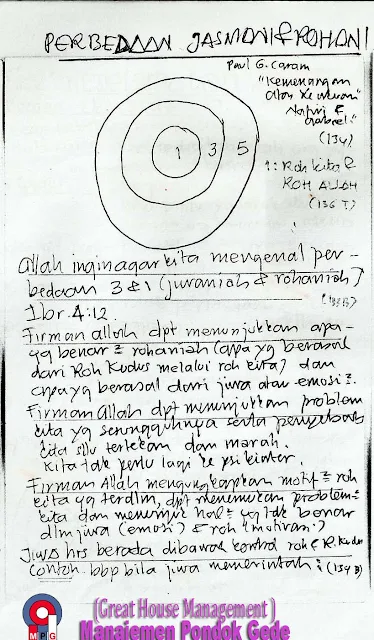 PERBEDAAN JASMANI & ROHANI
Paul G. Caram
"Kemenangan
atas Kekuatan"
(134)
1 3 5
1: Roh kita &
ROH ALLAH
(136 T)
Allah ingin agar kita mengenal per-
bedaan 3 & 1 (juraniah & rohaniah)
Ibr. 4:12.
Firman alloh dpt menunjukkan apa-
yg benar² rohaniah (apa yg berasal
dari Roh Kudus melalui roh kita) dan
apa yg berasal dari jiwa atau emosi².
Firman Allah dpt menunjukkan problem
kita yg sesungguhnya serta penyebab
kita sllu tertekan dan marah.
Kita tak perlu lagi ke psikiater.
Firman Allah mengungkapkan motif² roh
kita yg terdlm, dpt menemukan problem²
kita dan menemui hal² yg tak benar
dlm jiwa (emosi) & roh (motivasi)
Jiwa hrs berada dibawah kontrol roh & R. Kudus
Contoh bbp bila jiwa memerintah: (134 B)
MPG
(Great House Management)
Manajemen Pondok Gede